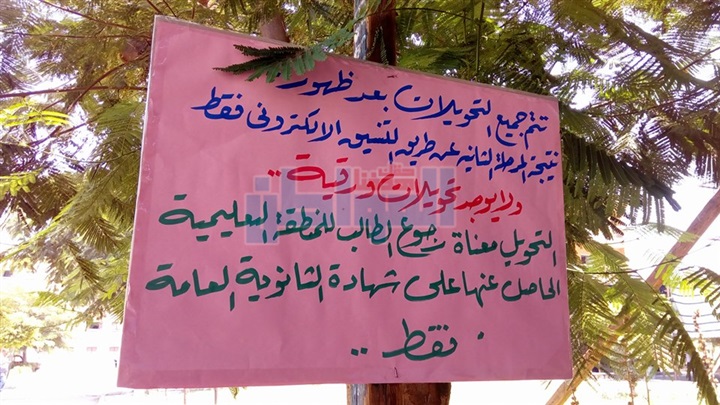 تتم جميع التحويلات بعد ظهور
نتيجة المرحلة الثانية عن طريق التنسيق الالكترونى فقط
ولا يوجد تحويلات ورقية ..
التحويل معناة رجوع الطالب للمنطقة التعليمية
الحاصل عنها على شهادة الثانوية العامة
فقط ..